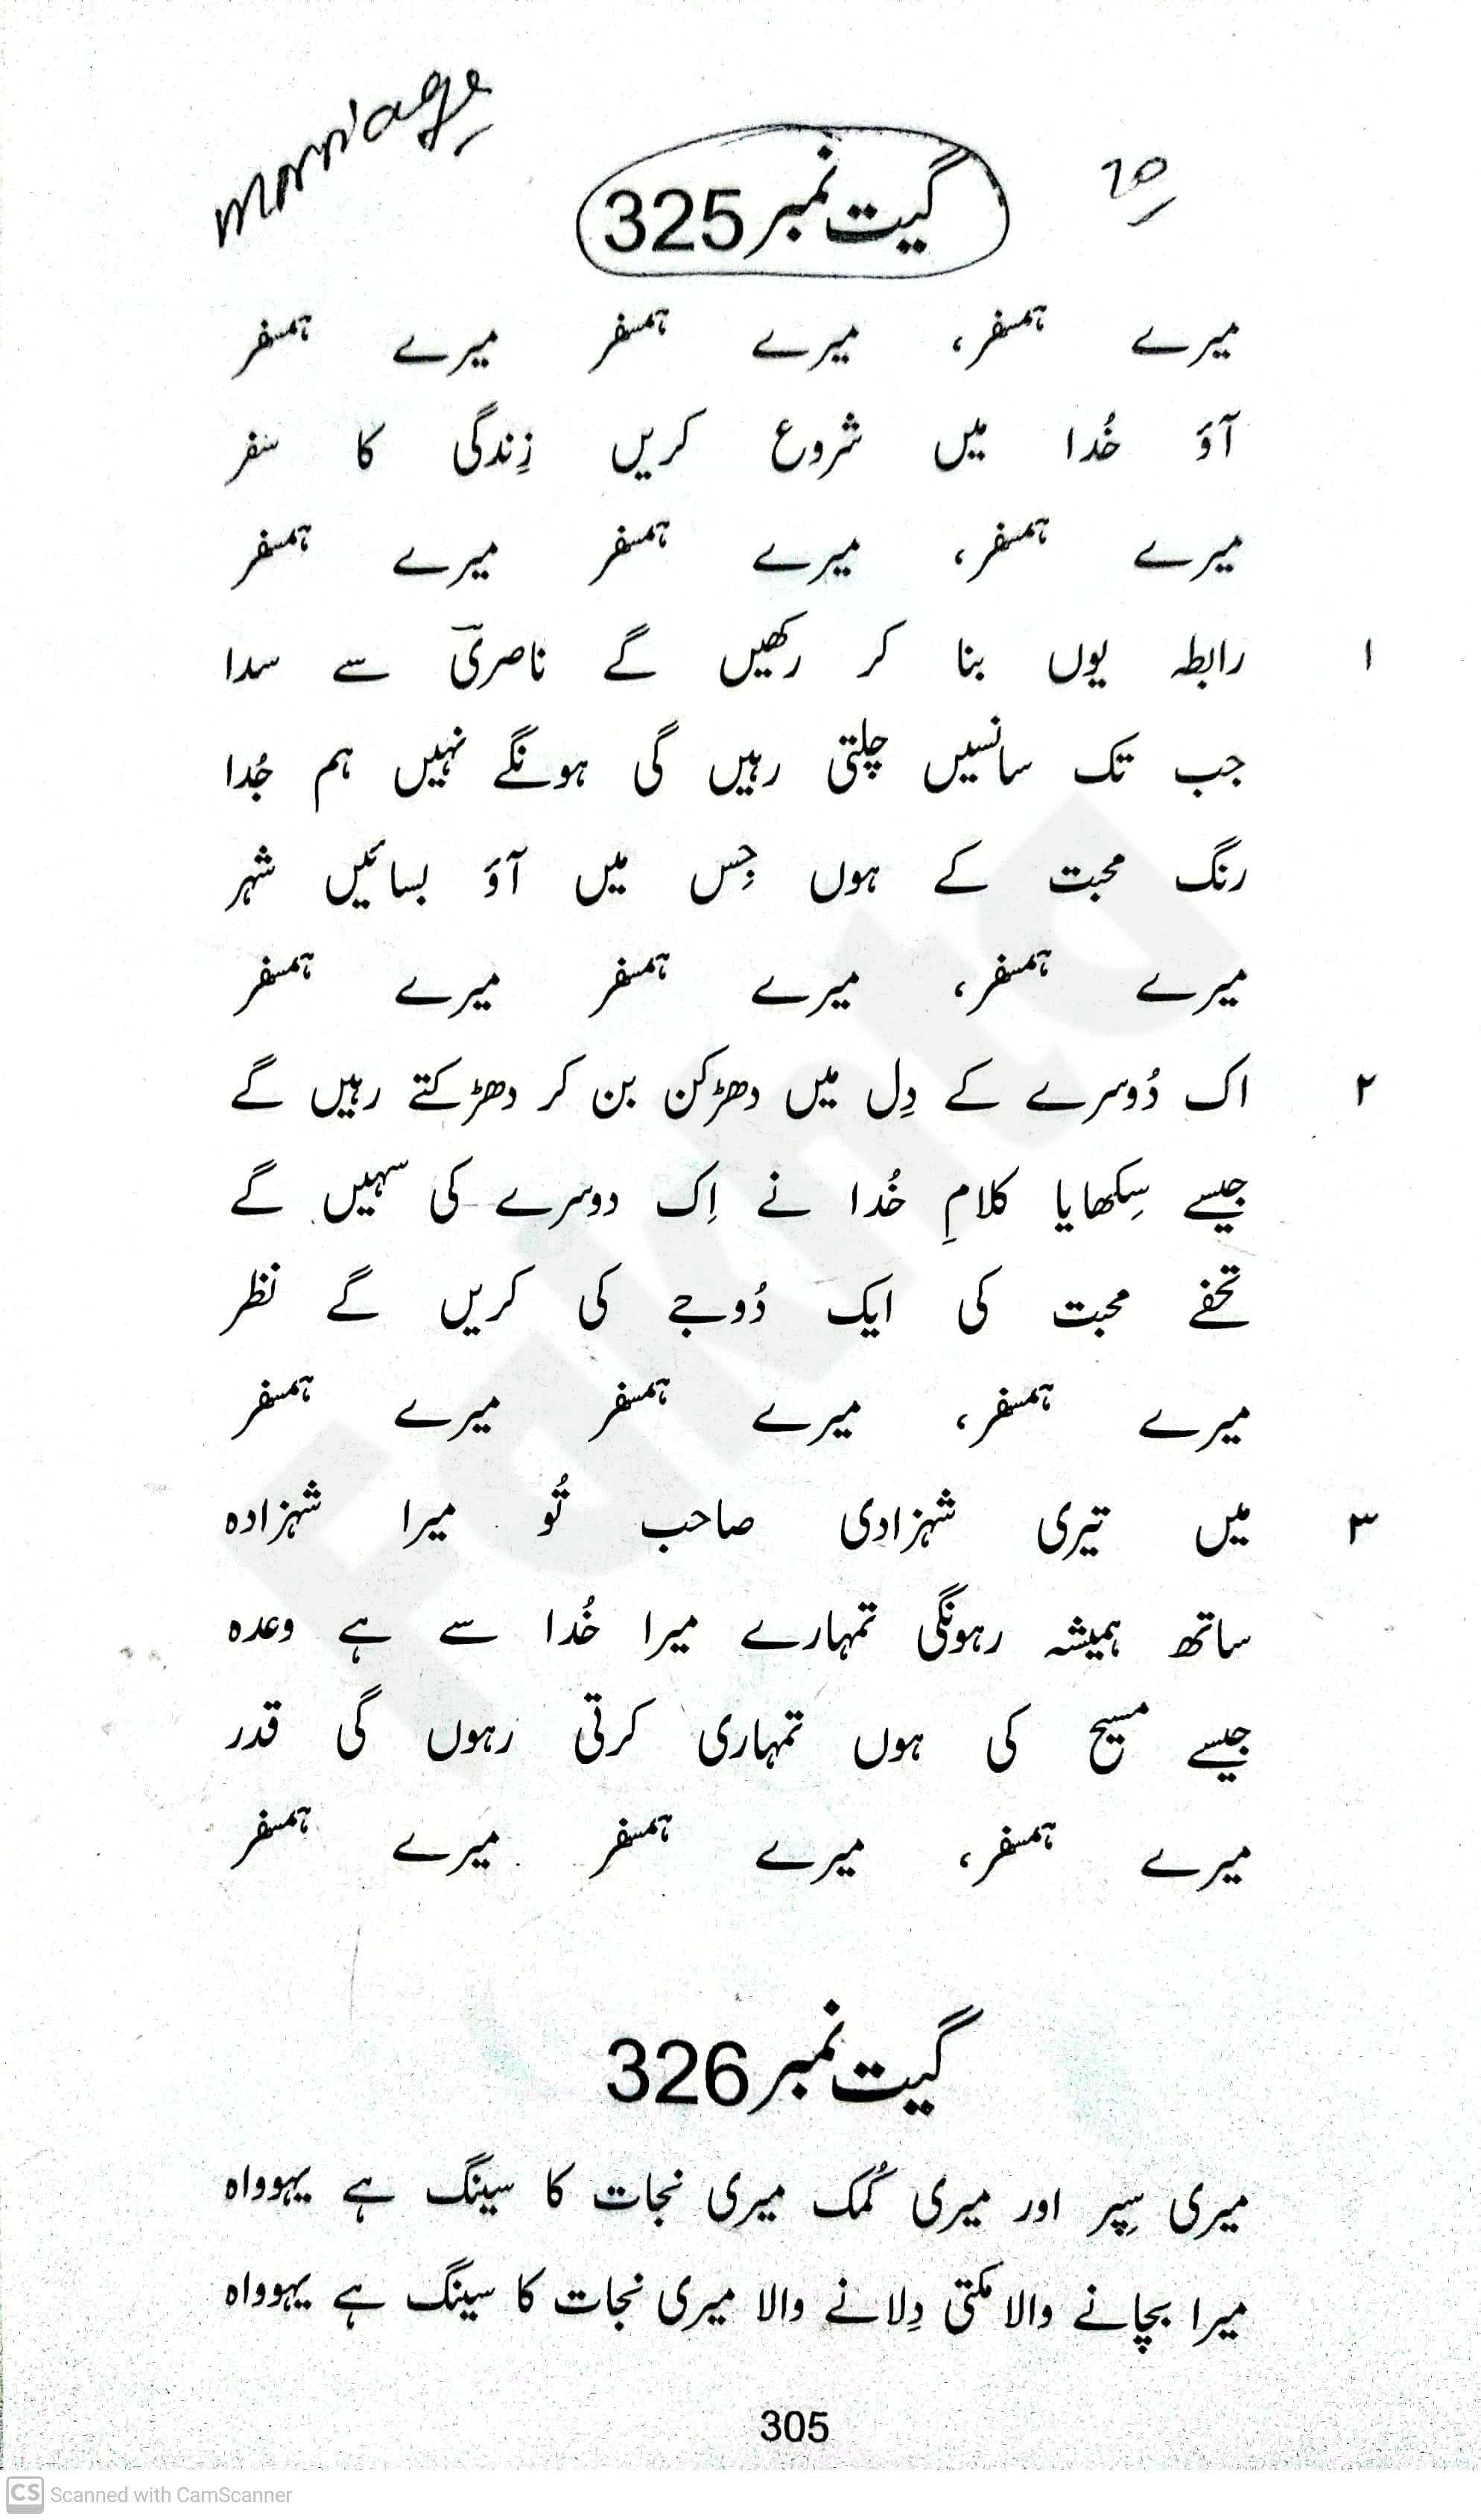 marriage
گیت نمبر 325
میرے ہمسفر، میرے ہمسفر میرے ہمسفر
آؤ خُدا میں شروع کریں زِندگی کا سفر
میرے ہمسفر، میرے ہمسفر میرے ہمسفر
۱ رابطہ یوں بنا کر رکھیں گے ناصریؔ سے سدا
جب تک سانسیں چلتی رہیں گی ہونگے نہیں ہم جُدا
رنگ محبت کے ہوں جِس میں آؤ بسائیں شہر
میرے ہمسفر، میرے ہمسفر میرے ہمسفر
۲ اک دُوسرے کے دِل میں دھڑکن بن کر دھڑکتے رہیں گے
جیسے سِکھایا کلامِ خُدا نے اِک دوسرے کی سہیں گے
تحفے محبت کی ایک دُوجے کی کریں گے نظر
میرے ہمسفر، میرے ہمسفر میرے ہمسفر
۳ میں تیری شہزادی صاحب تُو میرا شہزادہ
ساتھ ہمیشہ رہونگی تمہارے میرا خُدا سے ہے وعدہ
جیسے مسیح کی ہوں تمہاری کرتی رہوں گی قدر
میرے ہمسفر، میرے ہمسفر میرے ہمسفر
گیت نمبر 326
میری سِپر اور میری کُمک میری نجات کا سینگ ہے یہوواہ
میرا بچانے والا مکتی دِلانے والا میری نجات کا سینگ ہے یہوواہ
305
Fakhta
CS Scanned with CamScanner